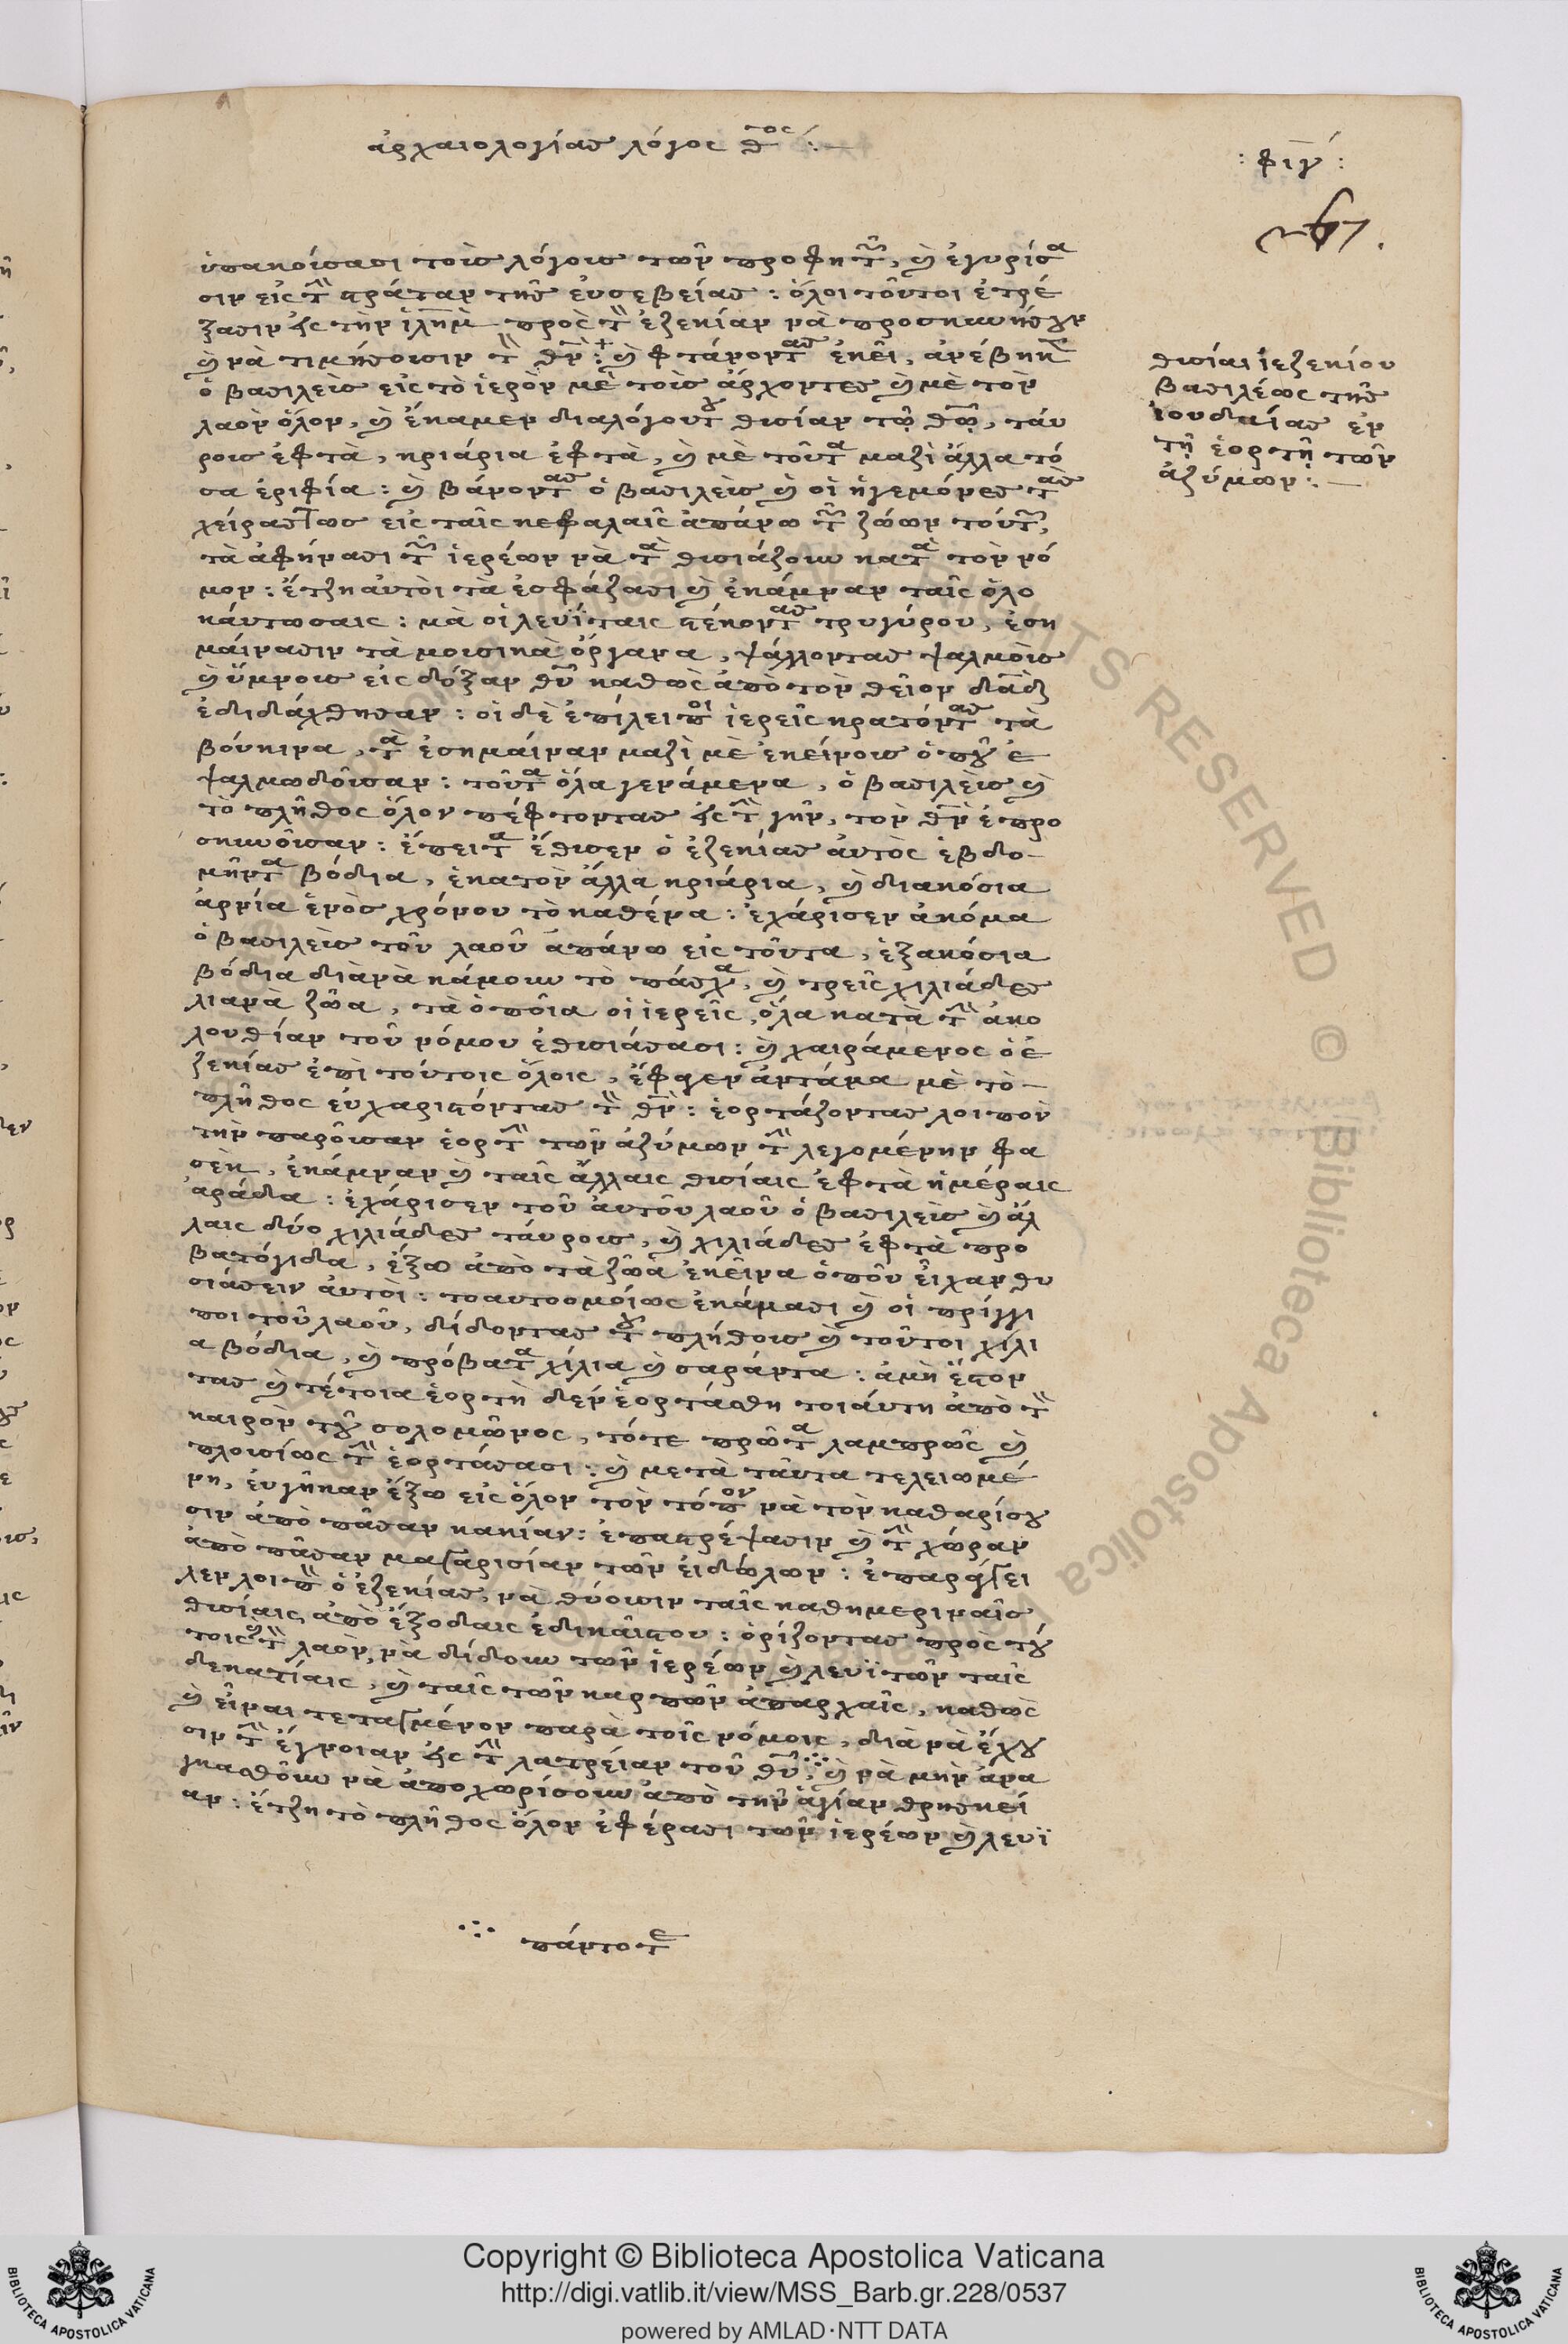 ἀρχαιολογίας λόγος θ^τος :—
: φιγ´ :
267.
ὑπακούσασι τοὺς λόγους τῶν προφητῶν, καὶ ἐγυρίσα
σιν εἰς τὴν στράταν τῆς εὐσεβείας : ὅλοι τοῦτοι ἐτρέ
ξασιν εἰς τὴν ἱλημ̅ πρὸς τὸν ἐζεκίαν νὰ προσκυνήσουν
καὶ νὰ τιμήσουσιν τὸν θν̅ : + καὶ φτάνοντας ἐκεῖ, ἀνέβηκεν
ὁ βασιλεὺς εἰς τὸ ἱερὸν μὲ τοὺς ἄρχοντες καὶ μὲ τὸν
λαὸν ὅλον, καὶ ἔκαμεν διαλόγουτου θυσίαν τῷ θῷ, ταύ
ρους ἑφτὰ, κριάρια ἑφτὰ, καὶ μὲ τοῦτα μαζὶ ἄλλα τό
σα ἐριφία : καὶ βάνοντας ὁ βασιλεὺς καὶ οἱ ἡγεμόνες τὰς
χείρας τως εἰς ταῖς κεφαλαῖς ἀπάνω τῶν ζώων τούτων,
τὰ ἀφήνασι τῶν ἱερέων νὰ τὰ θυσιάζουν κατὰ τὸν νό
μον : ἔτζη αὐτοὶ τὰ ἐσφάξασι καὶ ἐκάμναν ταῖς ὁλο
κάυτωσαις : μὰ οἱ λευΐταις στέκοντας τρυγύρου, ἐση
μαίνασιν τὰ μουσικὰ ὄργανα, ψάλλοντας ψαλμοὺς
καὶ ὕμνους εἰς δόξαν θυ̅ καθὼς ἀπὸ τὸν θεῖον δαδ̅
ἐδιδάχθησαν : οἱ δὲ ἐπίλειποι ἱερεῖς κρατόντας τὰ
βούκινα, τὰ ἐσημαίναν μαζὶ μὲ ἐκείνους ὁποῦ ἐ
ψαλμωδοῦσαν : τοῦτα ὅλα γενάμενα, ὁ βασιλεὺς καὶ
τὸ πλῆθος ὅλον πέφτοντας εἰς τὴν γῆν, τὸν θν̅ ἐπρο
σκυνοῦσαν : ἔπειτα ἔθυσεν ὁ ἐζεκίας αὐτὸς ἑβδο-
μῆντα βόδια, ἑκατὸν ἄλλα κριάρια, καὶ διακόσια
ἀρνία ἑνὸς χρόνου τὸ καθένα : ἐχάρισεν ἀκόμα
ὁ βασιλεὺς τοῦ λαοῦ ἀπάνω εἰς τοῦτα, ἑξακόσια
βόδια διὰ νὰ κάμουν τὸ πάσχα, καὶ τρεῖς χιλιάδες
λιανὰ ζῶα, τὰ ὁποῖα οἱ ἱερεῖς, ὅλα κατὰ τὴν ἀκο
λουθίαν τοῦ νόμου ἐθυσιάσασι : καὶ χαιράμενος ὁ ἐ
ζεκίας ἐπὶ τούτοις ὅλοις, ἔφαγεν ἀντάμα μὲ τὸ —
πλῆθος εὐχαριστόντας τὸν θν̅ : ἑορτάζοντας λοιπὸν
τὴν παροῦσαν ἑορτὴν τῶν ἀζύμων τὴν λεγομένην φα
σὲκ, ἐκάμναν καὶ ταῖς ἄλλαις θυσίαις ἑφτὰ ἡμέραις
ἀράδα : ἐχάρισεν τοῦ αὐτοῦ λαοῦ ὁ βασιλεὺς καὶ ἄλ
λαις δύο χιλιάδες ταύρους, καὶ χιλιάδες ἑφτὰ προ
βατόγιδα, ἔξω ἀπὸ τὰ ζῶα ἐκεῖνα ὁποῦ εἶχαν θυ
σιάσειν ἀυτοὶ : τοαυτοομοίως ἐκάμασι καὶ οἱ πρίγγι
ποι τοῦ λαοῦ, δίδοντας τοῦ πλήθους καὶ τοῦτοι χίλι
α βόδια, καὶ πρόβατα χίλια καὶ σαράντα : ἀμὴ ἔστον
τας καὶ τέτοια ἑορτὴ δὲν ἑορτάσθη τοιάυτη ἀπὸ τὸν
καιρὸν τοῦ σολομῶνος, τότε πρῶτα λαμπρῶς καὶ
πλουσίως τὴν ἑορτάσασι : καὶ μετὰ ταῦτα τελειωμέ
νη, ἐυγῆκαν ἔξω εἰς ὅλον τὸν τόπον νὰ τὸν καθαρίσου
σιν ἀπὸ πᾶσαν κακίαν : ἐπαστρέψασιν καὶ τὴν χώραν
ἀπὸ πᾶσαν μαγαρισίαν τῶν εἰδώλων : ἐπαράγγει
λεν λοιπὸν ὁ ἐζεκίας, νὰ θύουσιν ταῖς καθημεριναῖς
θυσίαις, ἀπὸ ἔξοδαις ἐδικαῖστου : ὁρίζοντας πρὸς τού
τοις τὸν λαὸν, νὰ δίδουν τῶν ἱερέων καὶ λευϊτῶν ταῖς
δεκατίαις, καὶ ταῖς τῶν καρπῶν ἀπαρχαῖς, καθὼς
καὶ εἶναι τεταγμένον παρὰ τοῖς νόμοις, διὰ νὰ ἔχου
σιν τὴν ἔγνοιαν εἰς τὴν λατρείαν τοῦ θυ̅ ∴ καὶ νὰ μὴν ἀνα
γκασθοῦν νὰ ἀποχωρίσουν ἀπὸ τὴν ἁγίαν θρησκεί
αν : ἔτζη τὸ πλῆθος ὅλον ἐφέρασι τῶν ἱερέων καὶ λευϊ
∴ πάντοτε
θυσίαι ἰεζεκίου
βασιλέως τῆς
ἰουδαίας ἐν
τῇ ἑορτῇ τῶν
ἀζύμων :—
Copyright © Biblioteca Apostolica Vaticana
http://digi.vatlib.it/view/MSS_Barb.gr.228/0537
powered by AMLAD·NTT DATA